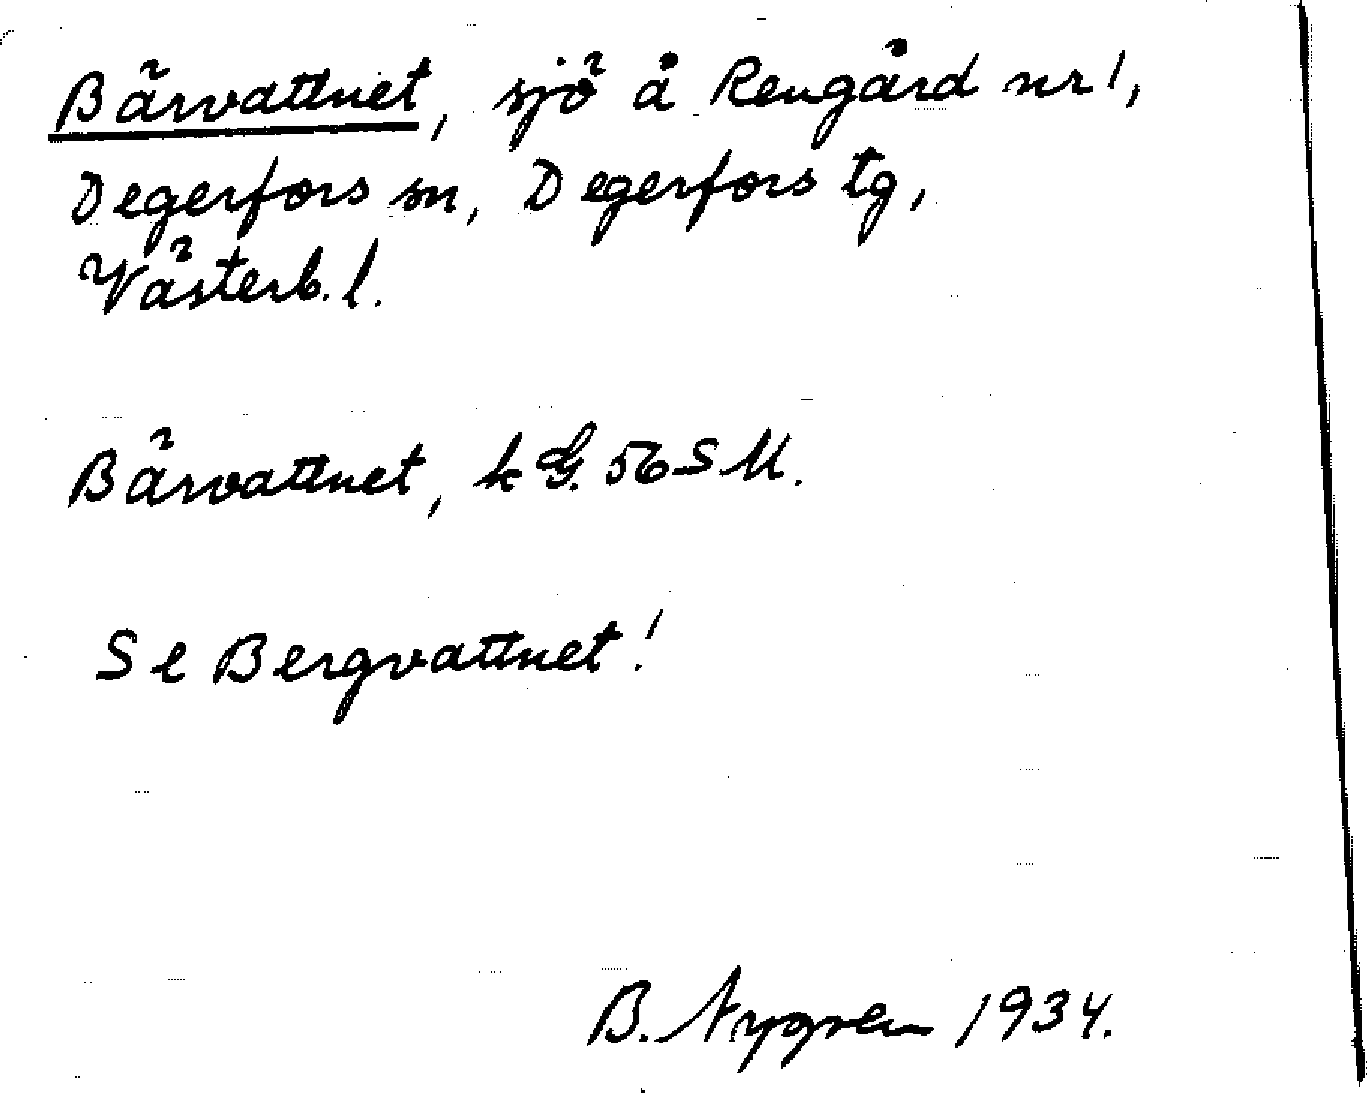 Bärvattnet, sjö å Rengård nr 1,
Degerfors sn, Degerfors tg,
Västerb. l.
Bärvattnet, k G. 56 S M.
Se Bergvattnet!
B. Nygren 1934.